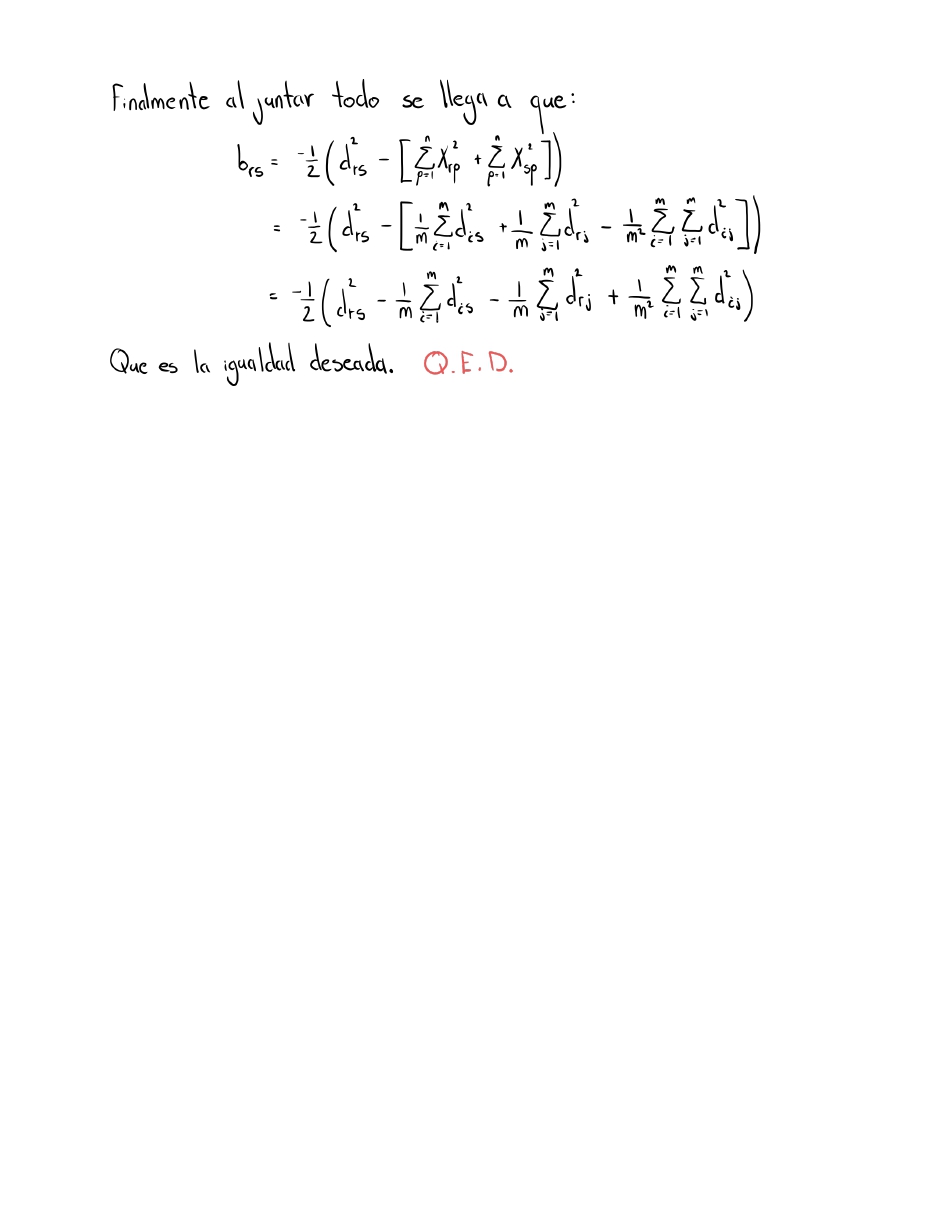 Finalmente al juntar todo se llega a que:
b_{rs} = -\frac{1}{2} ( d_{rs}^2 - [ \sum_{p=1}^{n} X_{rp}^2 + \sum_{p=1}^{n} X_{sp}^2 ] )
= -\frac{1}{2} ( d_{rs}^2 - [ \frac{1}{m} \sum_{i=1}^{m} d_{is}^2 + \frac{1}{m} \sum_{j=1}^{m} d_{rj}^2 - \frac{1}{m^2} \sum_{i=1}^{m} \sum_{j=1}^{m} d_{ij}^2 ] )
= -\frac{1}{2} ( d_{rs}^2 - \frac{1}{m} \sum_{i=1}^{m} d_{is}^2 - \frac{1}{m} \sum_{j=1}^{m} d_{rj}^2 + \frac{1}{m^2} \sum_{i=1}^{m} \sum_{j=1}^{m} d_{ij}^2 )
Que es la igualdad deseada. Q.E.D.